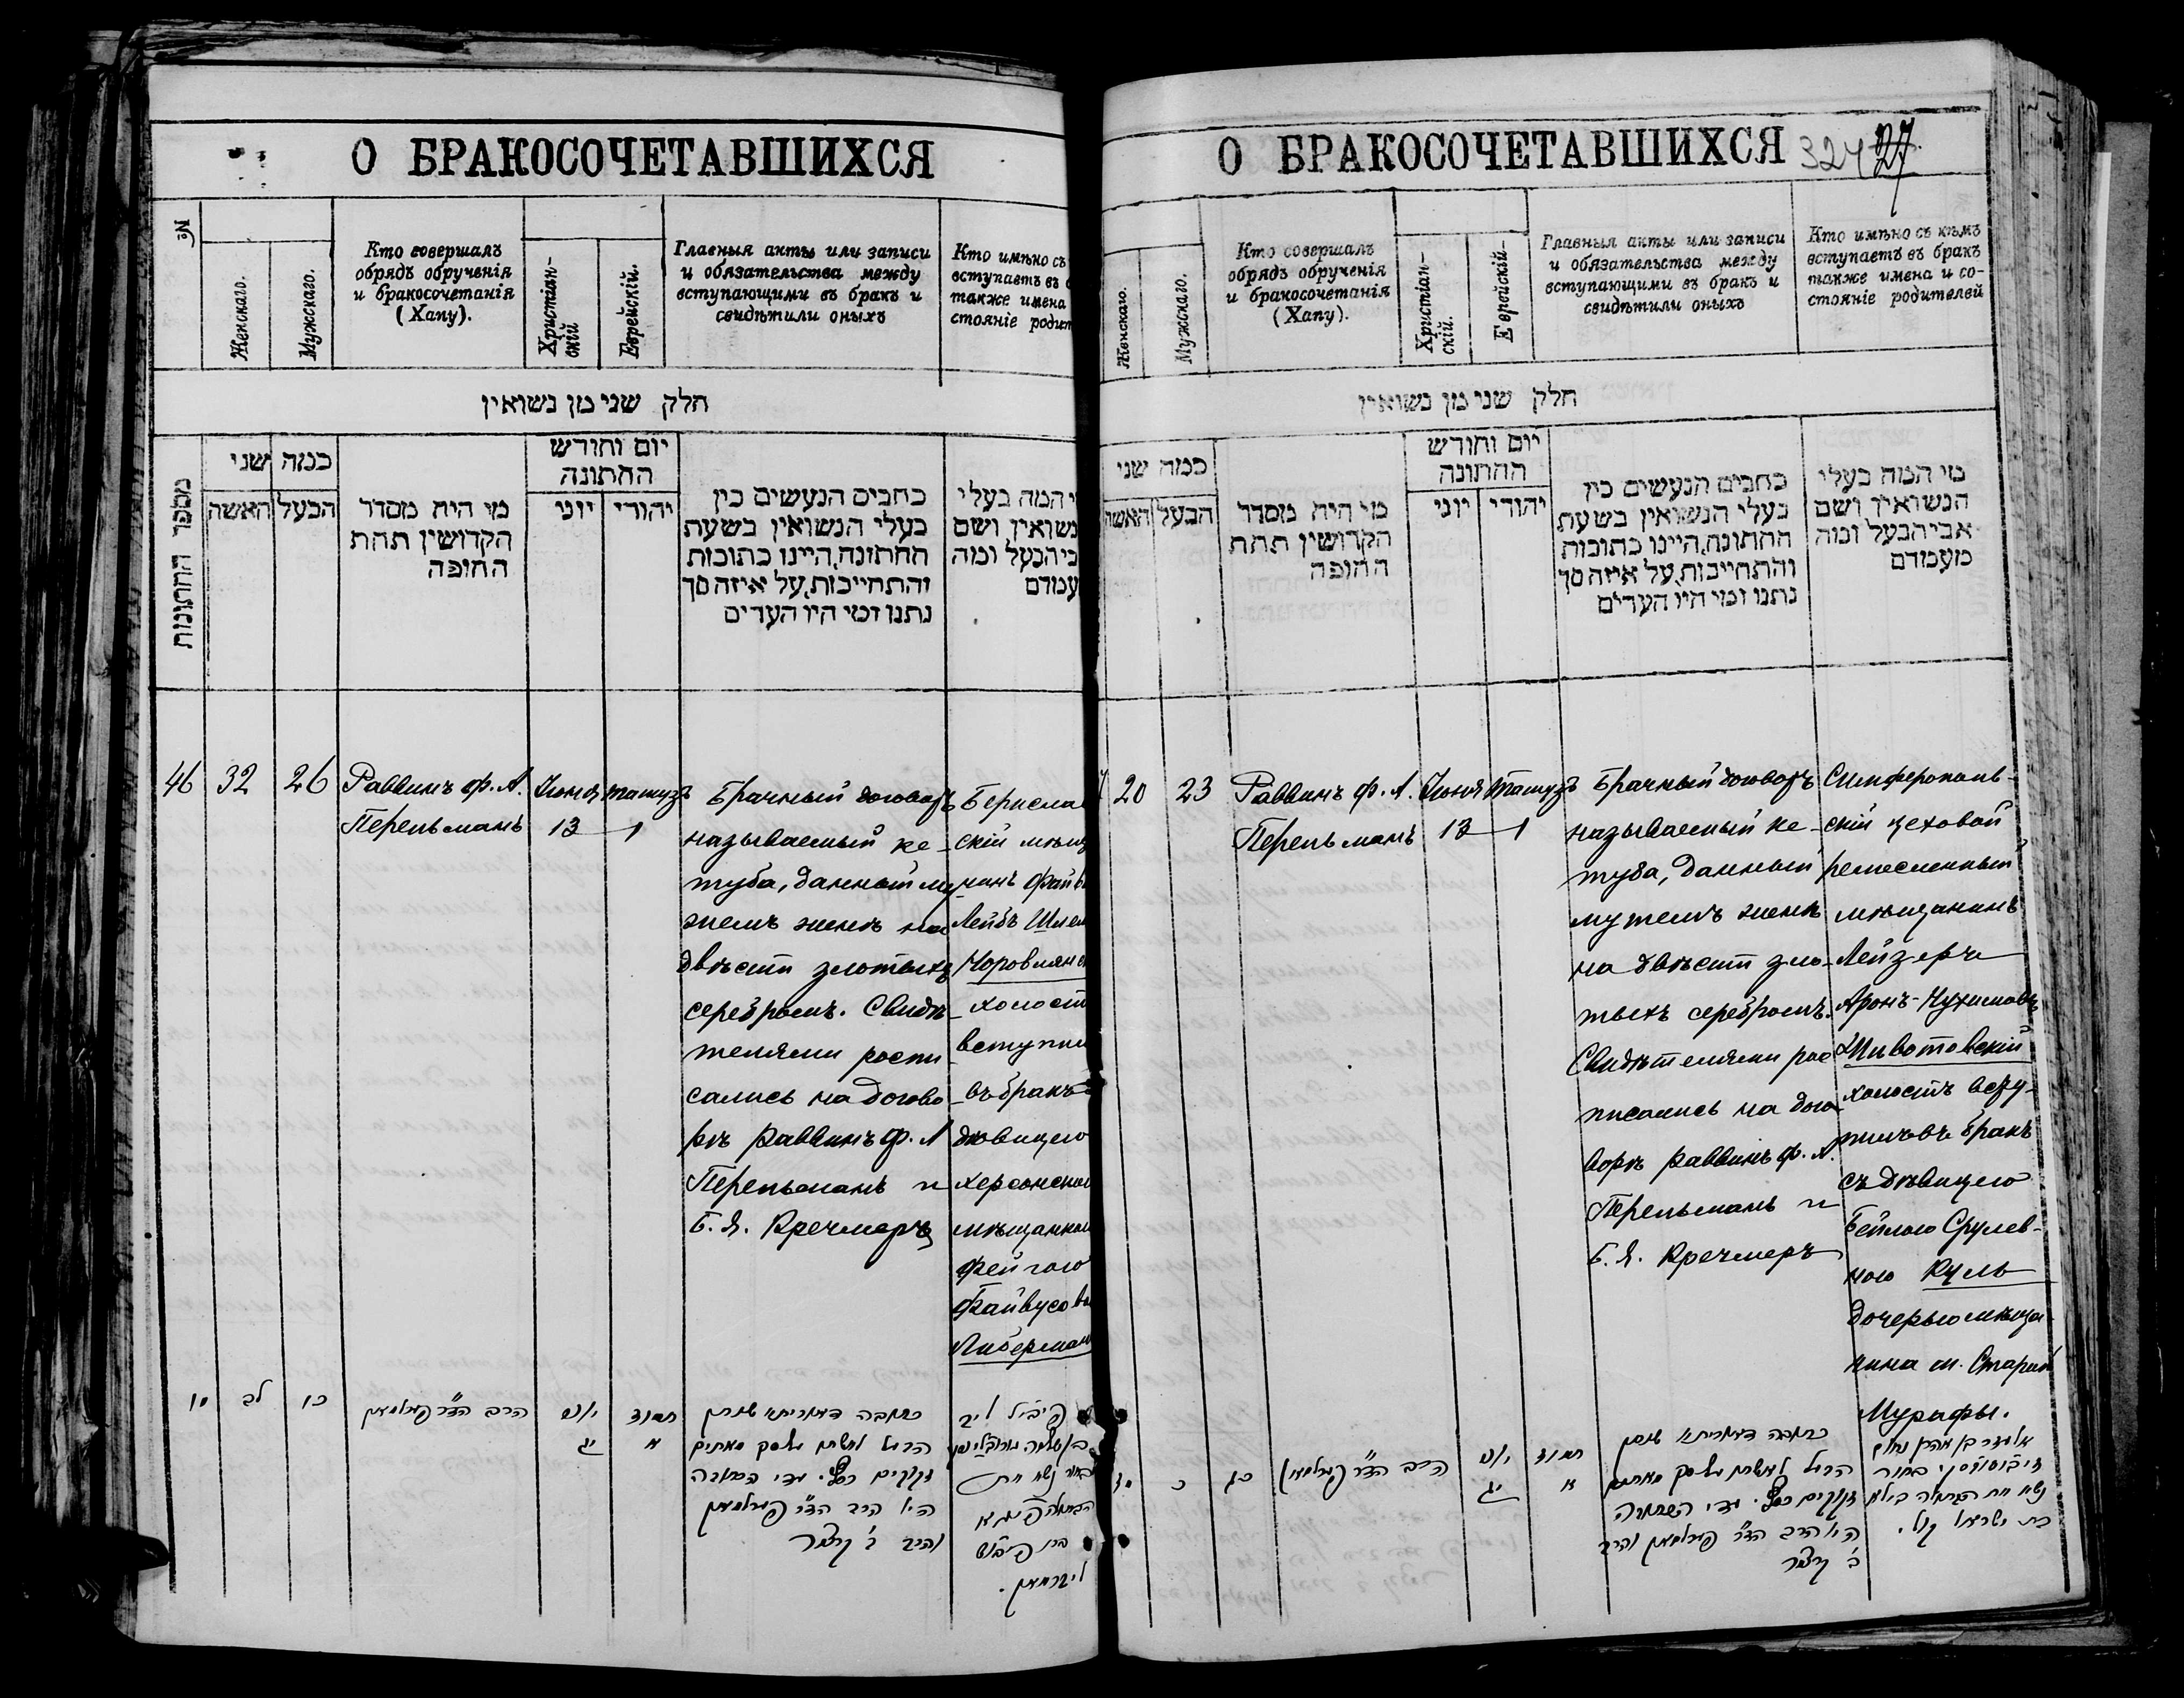 О БРАКОСОЧЕТАВШИХСЯ
№
Женскаго.
Мужскаго.
Кто совершалъ
обрядъ обрученія
и бракосочетанія
(Хапу).
Христіан-
скій
Еврейскій.
Главныя акты или записи
и обязательства между
вступающими въ бракъ и
свидѣтили оныхъ
Кто имѣно съ
вступаетъ въ
также имена
стояніе родит
חלק שני מן נשואין
מספר החתונות
כמה שני
האשה
הבעל
מי היה מסדר
הקדושין תחת
החופה
יום וחודש
החתונה
יוני
יהודי
כתבים הנעשים בין
בעלי הנשואין בשעת
החתונה, היינו כתובות
והתחייבות, על איזה סך
נתנו ומי היו העדים
י המה בעלי
נשואין ושם
בי הבעל ומה
עמדם
46
32
26
Раввинъ Ф. А.
Перельманъ
Іюня
13
Тамузъ
1
Брачный договоръ
называемый ке-
туба, данный му-
жемъ женѣ на
двѣсти злотыхъ
серебромъ. Свидѣ-
телями роспи
сались на догово-
рѣ Раввинъ Ф. А
Перельманъ и
Б. Я. Кречмеръ
Берислав
скій мѣщ
нинъ Файв
Лейбъ Шлем
Коровлянс
холост
вступил
въ бракъ
дѣвицею
херсонскою
мѣщанкою
Фейгою
Файвусовн
Либерман
לב
כו
הרב הד״ר פערלמאן
יוני
יג
תמוז
א
כתובה דאורייתא שנתן
הבעל לאשתו על סך מאתים
זקוקים כסף. עדי הכתובה
היו הרב הד״ר פערלמאן
והרב ב׳ קרעצמר
ליבערמאן.
О БРАКОСОЧЕТАВШИХСЯ
324
27
Женскаго.
Мужскаго.
Кто совершалъ
обрядъ обрученія
и бракосочетанія
(Хапу).
Христіан-
скій.
Еврейскій-
Главныя акты или записи
и обязательства между
вступающими въ бракъ и
свидѣтили оныхъ
Кто имѣно съ кѣмъ
вступаетъ въ бракъ
также имена и со-
стояніе родителей
חלק שני מן נשואין
כמה שני
האשה
הבעל
מי היה מסדר
הקדושין תחת
החופה
יום וחודש
החתונה
יוני
יהודי
כתבים הנעשים בין
בעלי הנשואין בשעת
החתונה, היינו כתובות
והתחייבות, על איזה סך
נתנו ומי היו העדים
מי המה בעלי
הנשואין ושם
אבי הבעל ומה
מעמדם
20
23
Раввинъ Ф. А.
Перельманъ
Іюня
13
Тамузъ
1
Брачный договоръ
называемый ке-
туба, данный
мужемъ женѣ
на двѣсти зло-
тыхъ серебромъ.
Свидѣтелями рос
писались на дого-
ворѣ Раввинъ Ф. А.
Перельманъ и
Б. Я. Кречмеръ
Симферополь-
скій цеховой
ремесленный
мѣщанинъ
Лейзеръ
Аронъ-Нухимовъ
Животовскій
холостъ всту-
пилъ въ бракъ
съ дѣвицею
Бейлою Срулев-
ною Куль
дочерью мѣща-
нина м. Старой
Мурафы.
כ
כג
הרב הד״ר פערלמאן
יוני
יג
תמוז
א
כתובה דאורייתא שנתן
הבעל לאשתו על סך מאתים
זקוקים כסף. עדי הכתובה
היו הרב הד״ר פערלמאן והרב
ב׳ קרעצמר
אליעזר בן אהרן נחום
בחור
נשא את הבתולה ביילא
בת ישראל קול.